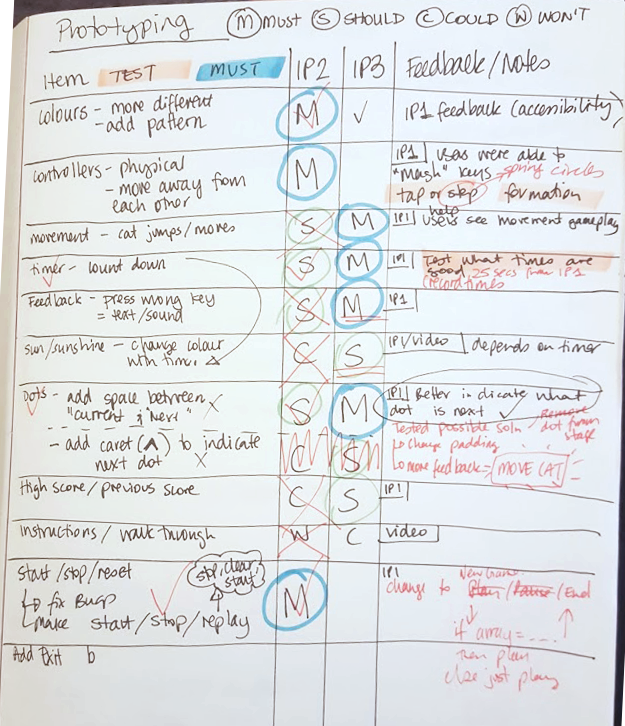 Prototyping Ⓜ MUST Ⓢ SHOULD Ⓒ COULD Ⓦ WON'T
Item TEST MUST IP2 IP3 Feedback/Notes
colours - more different
- add pattern
M ✓ IP1 feedback (accessibility)
controllers - physical
- more away from
each other
M
IP1 users were able to
"mash" keys - spring circles
tap or step formation
movement - cat jumps/moves
S M
IP1 help users see movement gameplay
timer - count down
S M
IP1 Test what times are
good, 25 secs from IP1
(record times
Feedback - press wrong key
= text/sound
S M IP1
sun/sunshine - change colour
with timer
C S IP1/video depends on timer
Dots - add space between
"current & next" X
S M
IP1 Better indicate what
dot is next ✓
Tested possible soln / Remove
dot from
stack
- add caret (^) to indicate
next dot X
C S
↳ change padding
↳ more feedback = MOVE CAT
High score/previous score
C S IP1
Instructions/walk through
W C video
start/stop/reset
↳ fix bugs
↳ make start/stop/replay
stop, clear,
start
M
IP1
New Game
change to Start/Pause/End
if array = ....
then play
else just play
Add Exit b